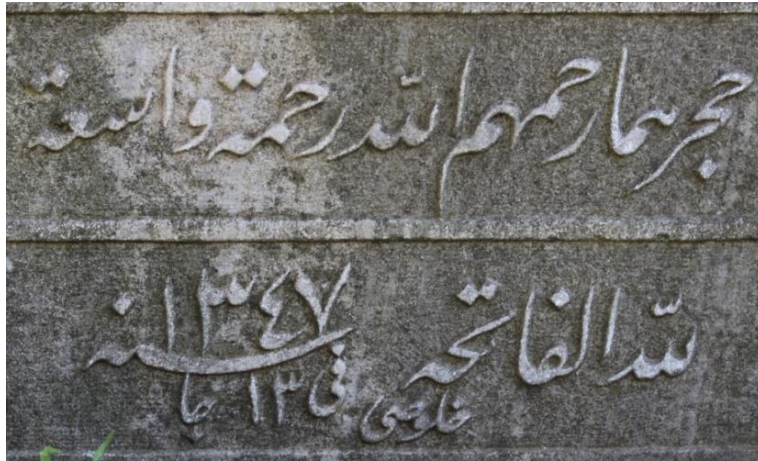 حجريهما رحمهم الله رحمة واسعة
لله الفاتحه سنه ١٣٤٧
خلوصی فی ١٣ جا